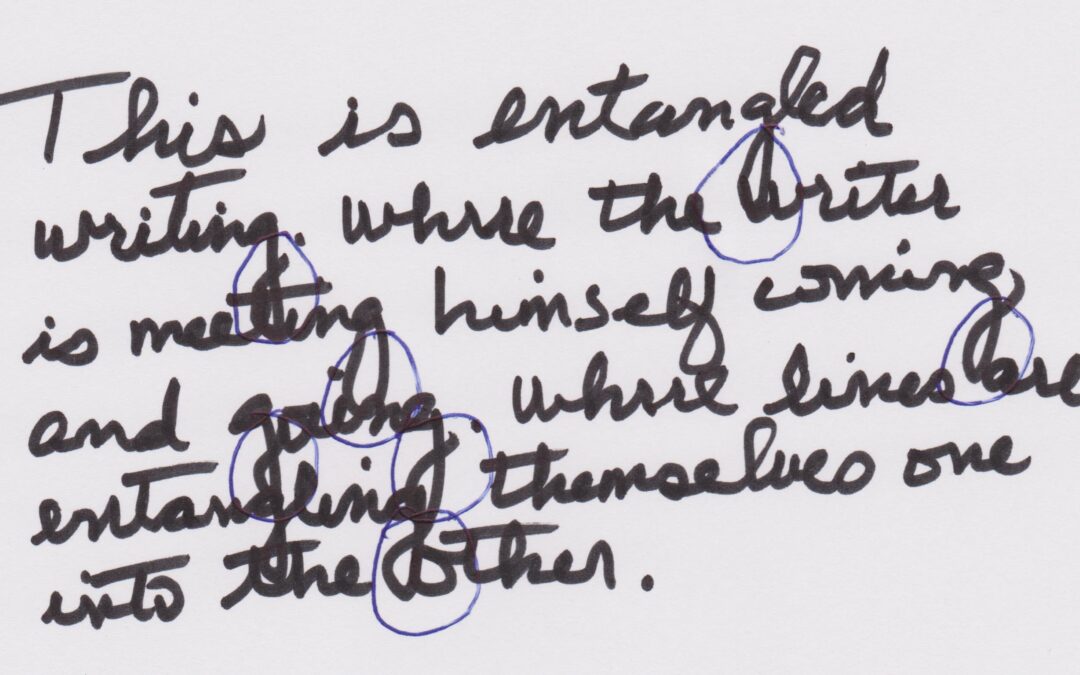 This is entangled
writing. where the writer
is meeting himself coming,
and going. where lines are
entangling themselves one
into the other.